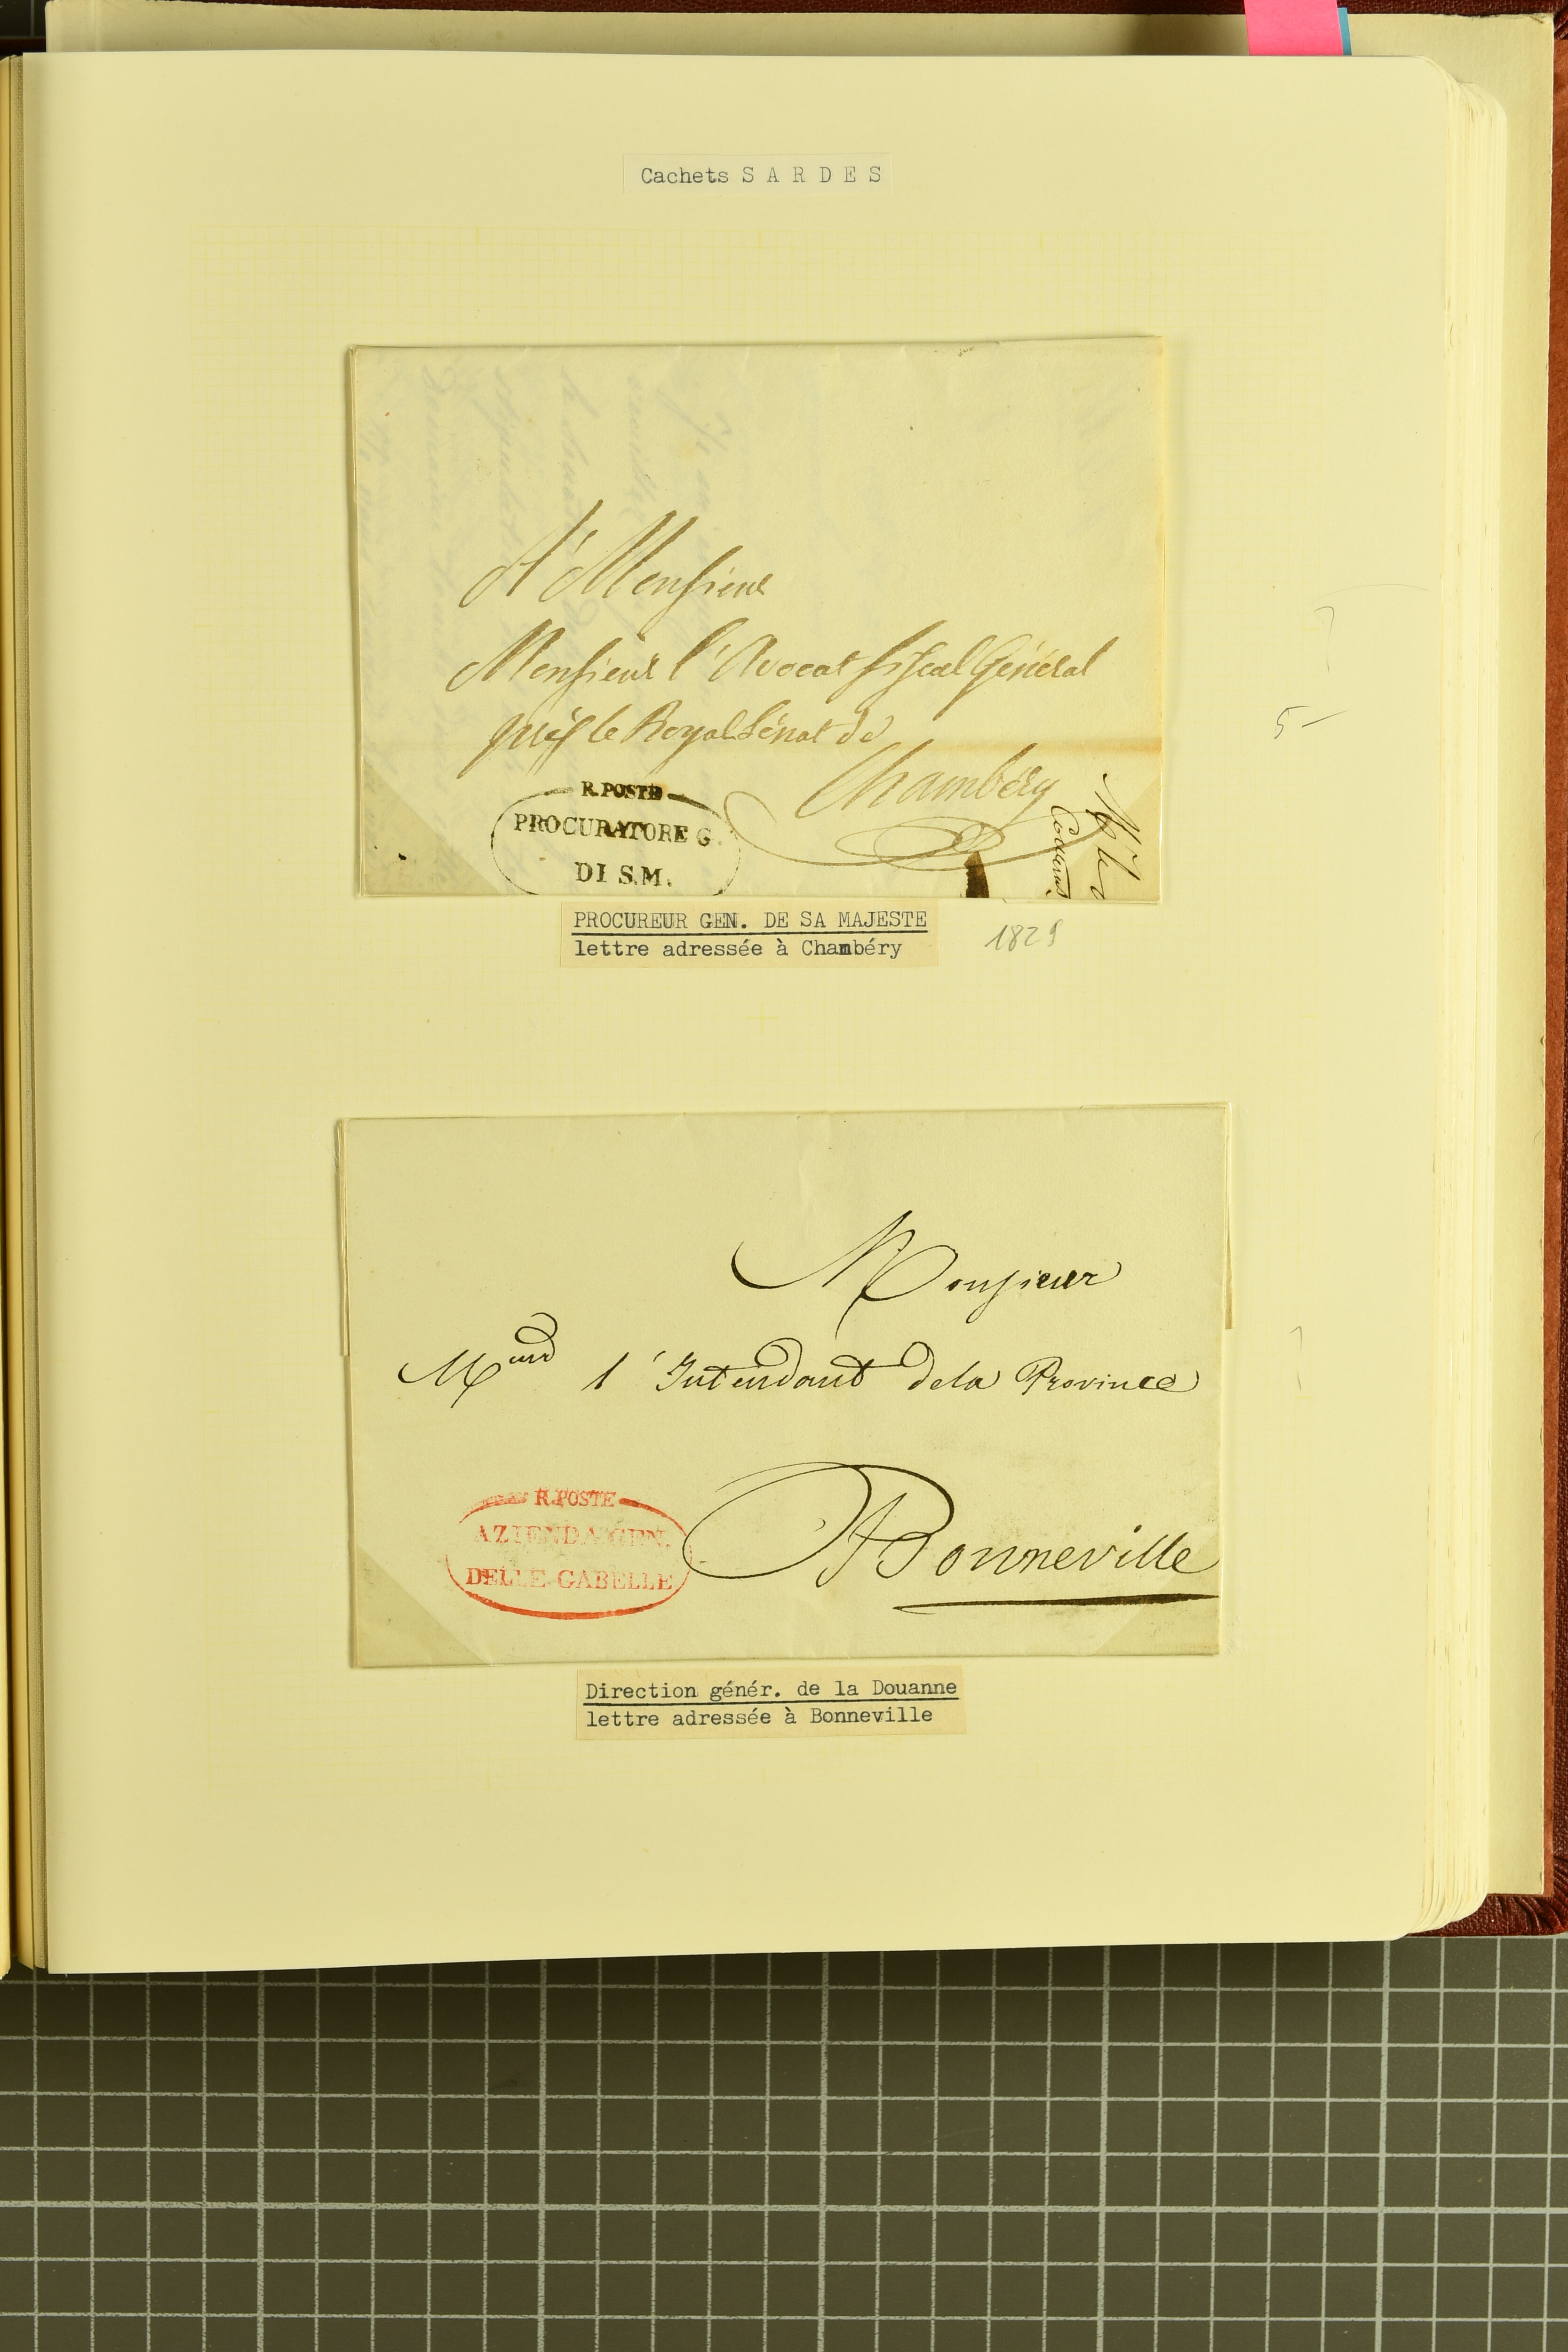 Cachets S A R D E S
A Monsieur
Monsieur l'Avocat fiscal Général
près le Royal Sénat de
Chambéry
R. POSTE
PROCURATORE G.
DI S.M.
PROCUREUR GEN. DE SA MAJESTE
lettre adressée à Chambéry
1829
5 -
Monsieur
M l'Intendant de la Province
A Bonneville
R. POSTE
AZIENDA GEN.
DELLE GABELLE
Direction génér. de la Douanne
lettre adressée à Bonneville